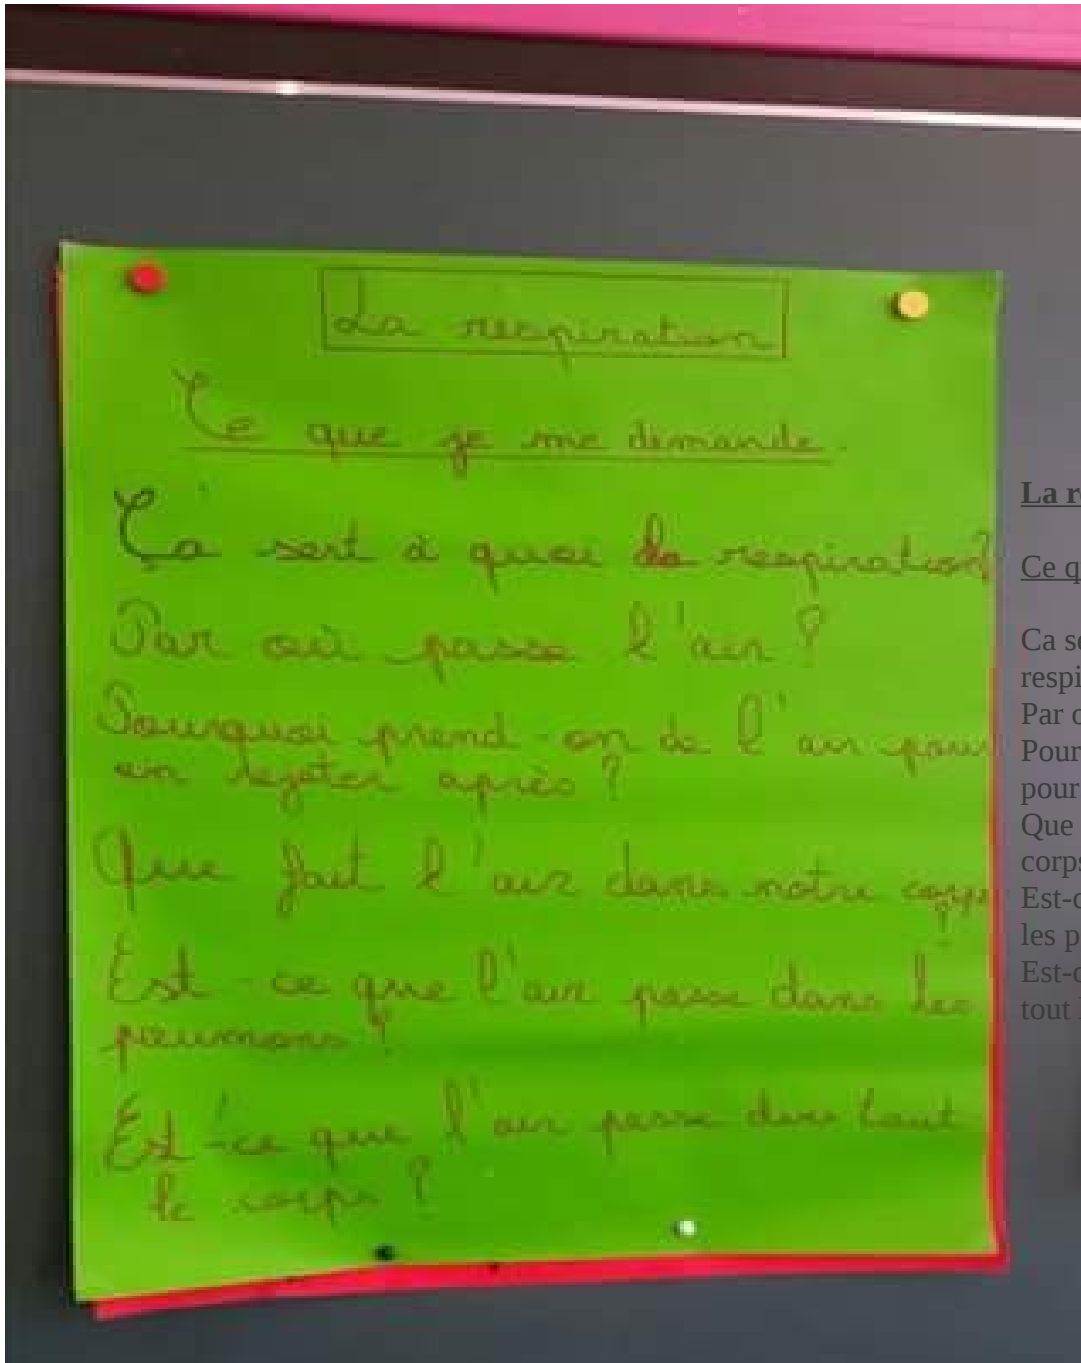 La respiration
Ce que je me demande.
Ça sert à quoi la respiration?
Par où passe l'air ?
Pourquoi prend-on de l'air pour
en rejeter après ?
Que fait l'air dans notre corps
?
Est-ce que l'air passe dans les
poumons ?
Est-ce que l'air passe dans tout
le corps ?
La r
Ce q
Ca se
respi
Par o
Pour
pour
Que
corps
Est-c
les p
Est-c
tout